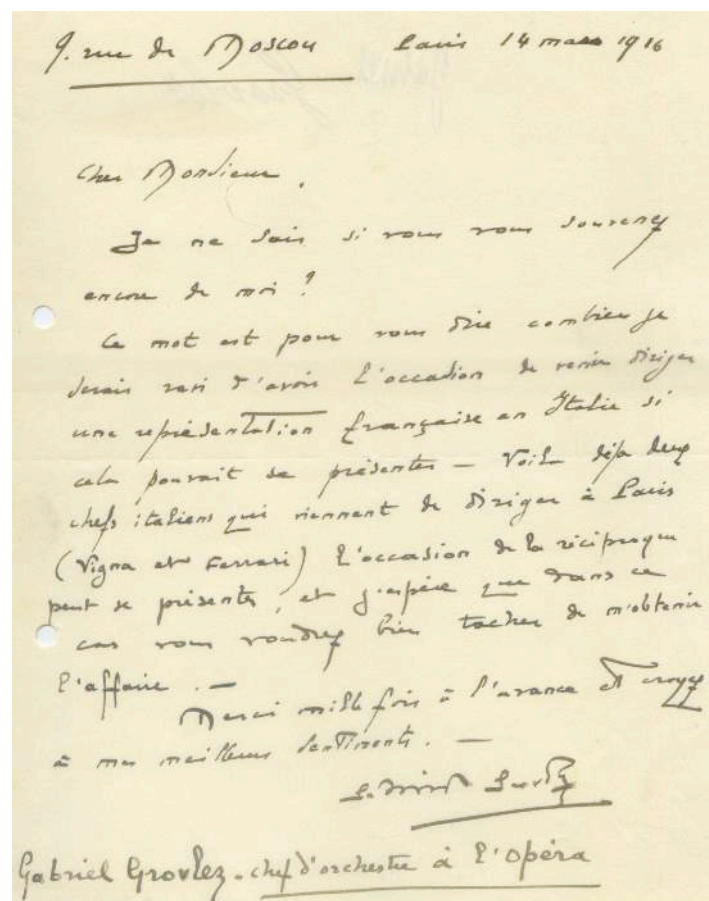 9. rue de Moscou Paris 14 mars 1916
Cher Monsieur.
Je ne sais si vous vous souvenez
encore de moi ?
Ce mot est pour vous dire combien je
serais ravi d'avoir l'occasion de venir diriger
une représentation française en Italie si
cela pouvait se présenter — Voilà déjà deux
chefs italiens qui viennent de diriger à Paris
(Vigna et Ferrari) l'occasion de la réciproque
peut se présenter, et j'espère que dans ce
cas vous voudrez bien tacher de m'obtenir
l'affaire . —
Merci mille fois à l'avance et croyez
à mes meilleurs sentiments. —
Gabriel Grovlez
Gabriel Grovlez - chef d'orchestre à l'Opéra